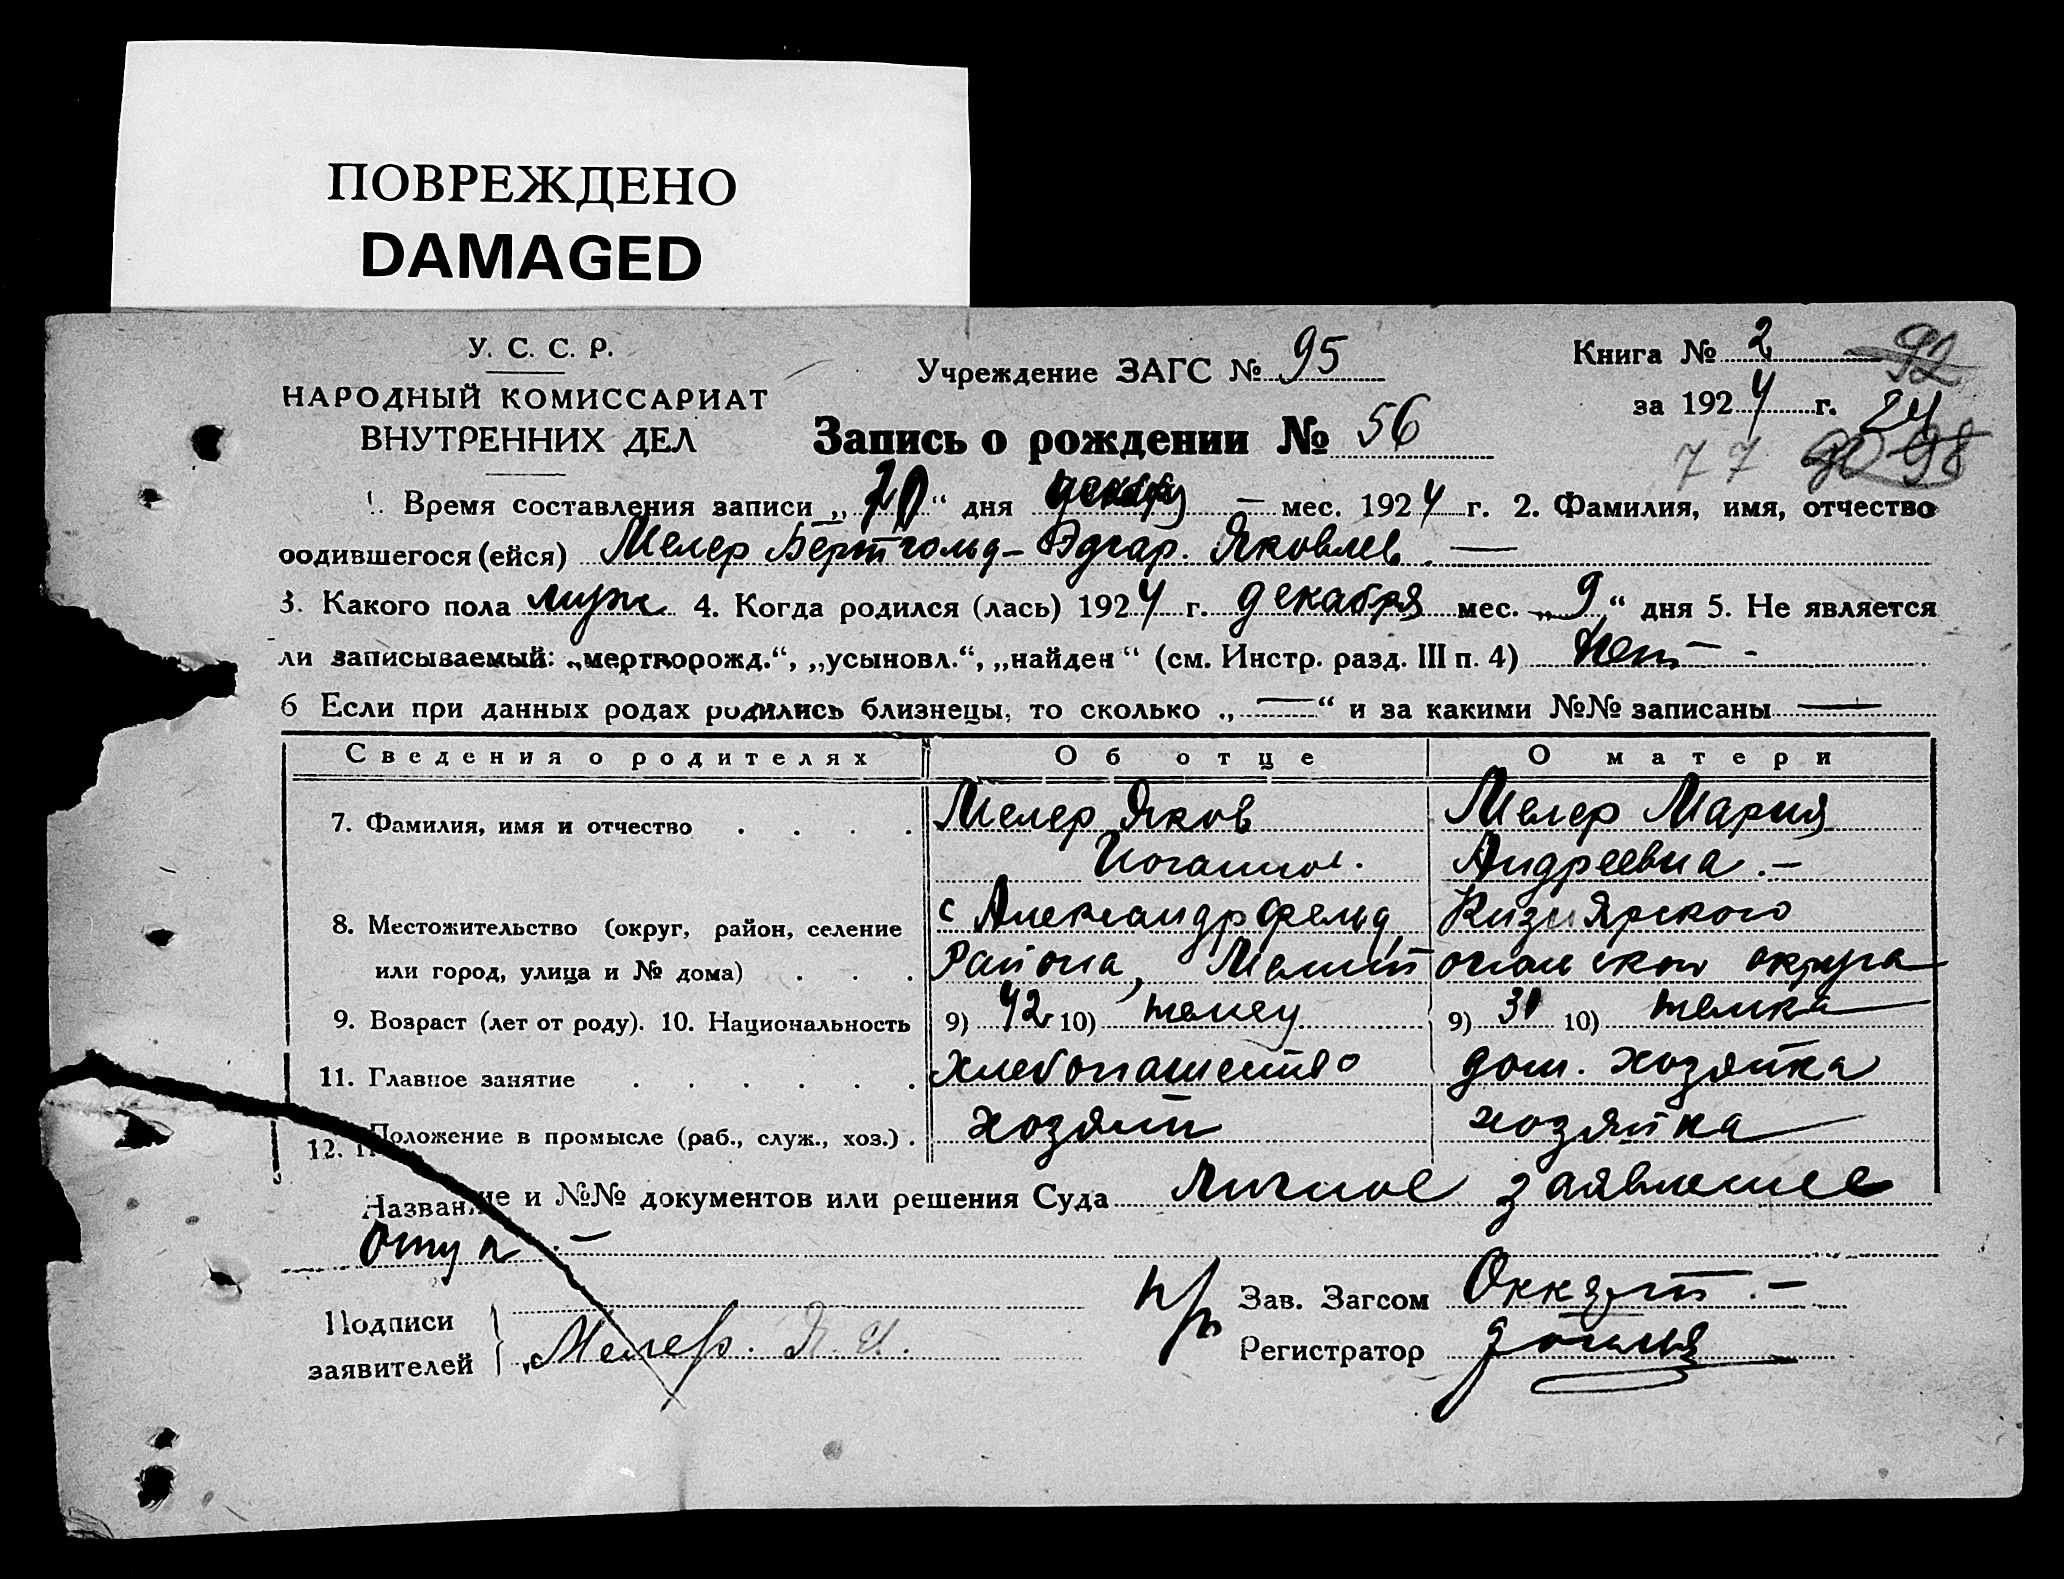 ПОВРЕЖДЕНО
DAMAGED
У. С. С. Р.
НАРОДНЫЙ КОМИССАРИАТ
ВНУТРЕННИХ ДЕЛ
Учреждение ЗАГС № 95
Книга № 2
92
за 1924 г.
24
Запись о рождении № 56
77 90 98
1. Время составления записи „ “ дня декабря — мес. 1924 г. 2. Фамилия, имя, отчество
родившегося (ейся) Мелер Бертгольд-Эдгар. Яковлев. —
3. Какого пола муж 4. Когда родился (лась) 1924 г. декабря мес. „9“ дня 5. Не является
ли записываемый: „мертворожд.“, „усыновл.“, „найден“ (см. Инстр. разд. III п. 4) нет —
6 Если при данных родах родились близнецы, то сколько „—“ и за какими №№ записаны —
Сведения о родителях Об отце О матери
7. Фамилия, имя и отчество . . . . Мелер Яков Мелер Мария
Иоганнов. Андреевна. —
8. Местожительство (округ, район, селение с Александрфельд, Кизиярского
или город, улица и № дома) . . . Района, Мелитопольского округа
9. Возраст (лет от роду). 10. Национальность 9) 42 10) немец 9) 31 10) немка
11. Главное занятие . . . . . . Хлебопашество дом. хозяйка
12. Положение в промысле (раб., служ., хоз.) . хозяин хозяйка
Название и №№ документов или решения Суда Личное заявление
Отца. —
Подписи
заявителей Мелер. Я. И.
Зав. Загсом
Регистратор